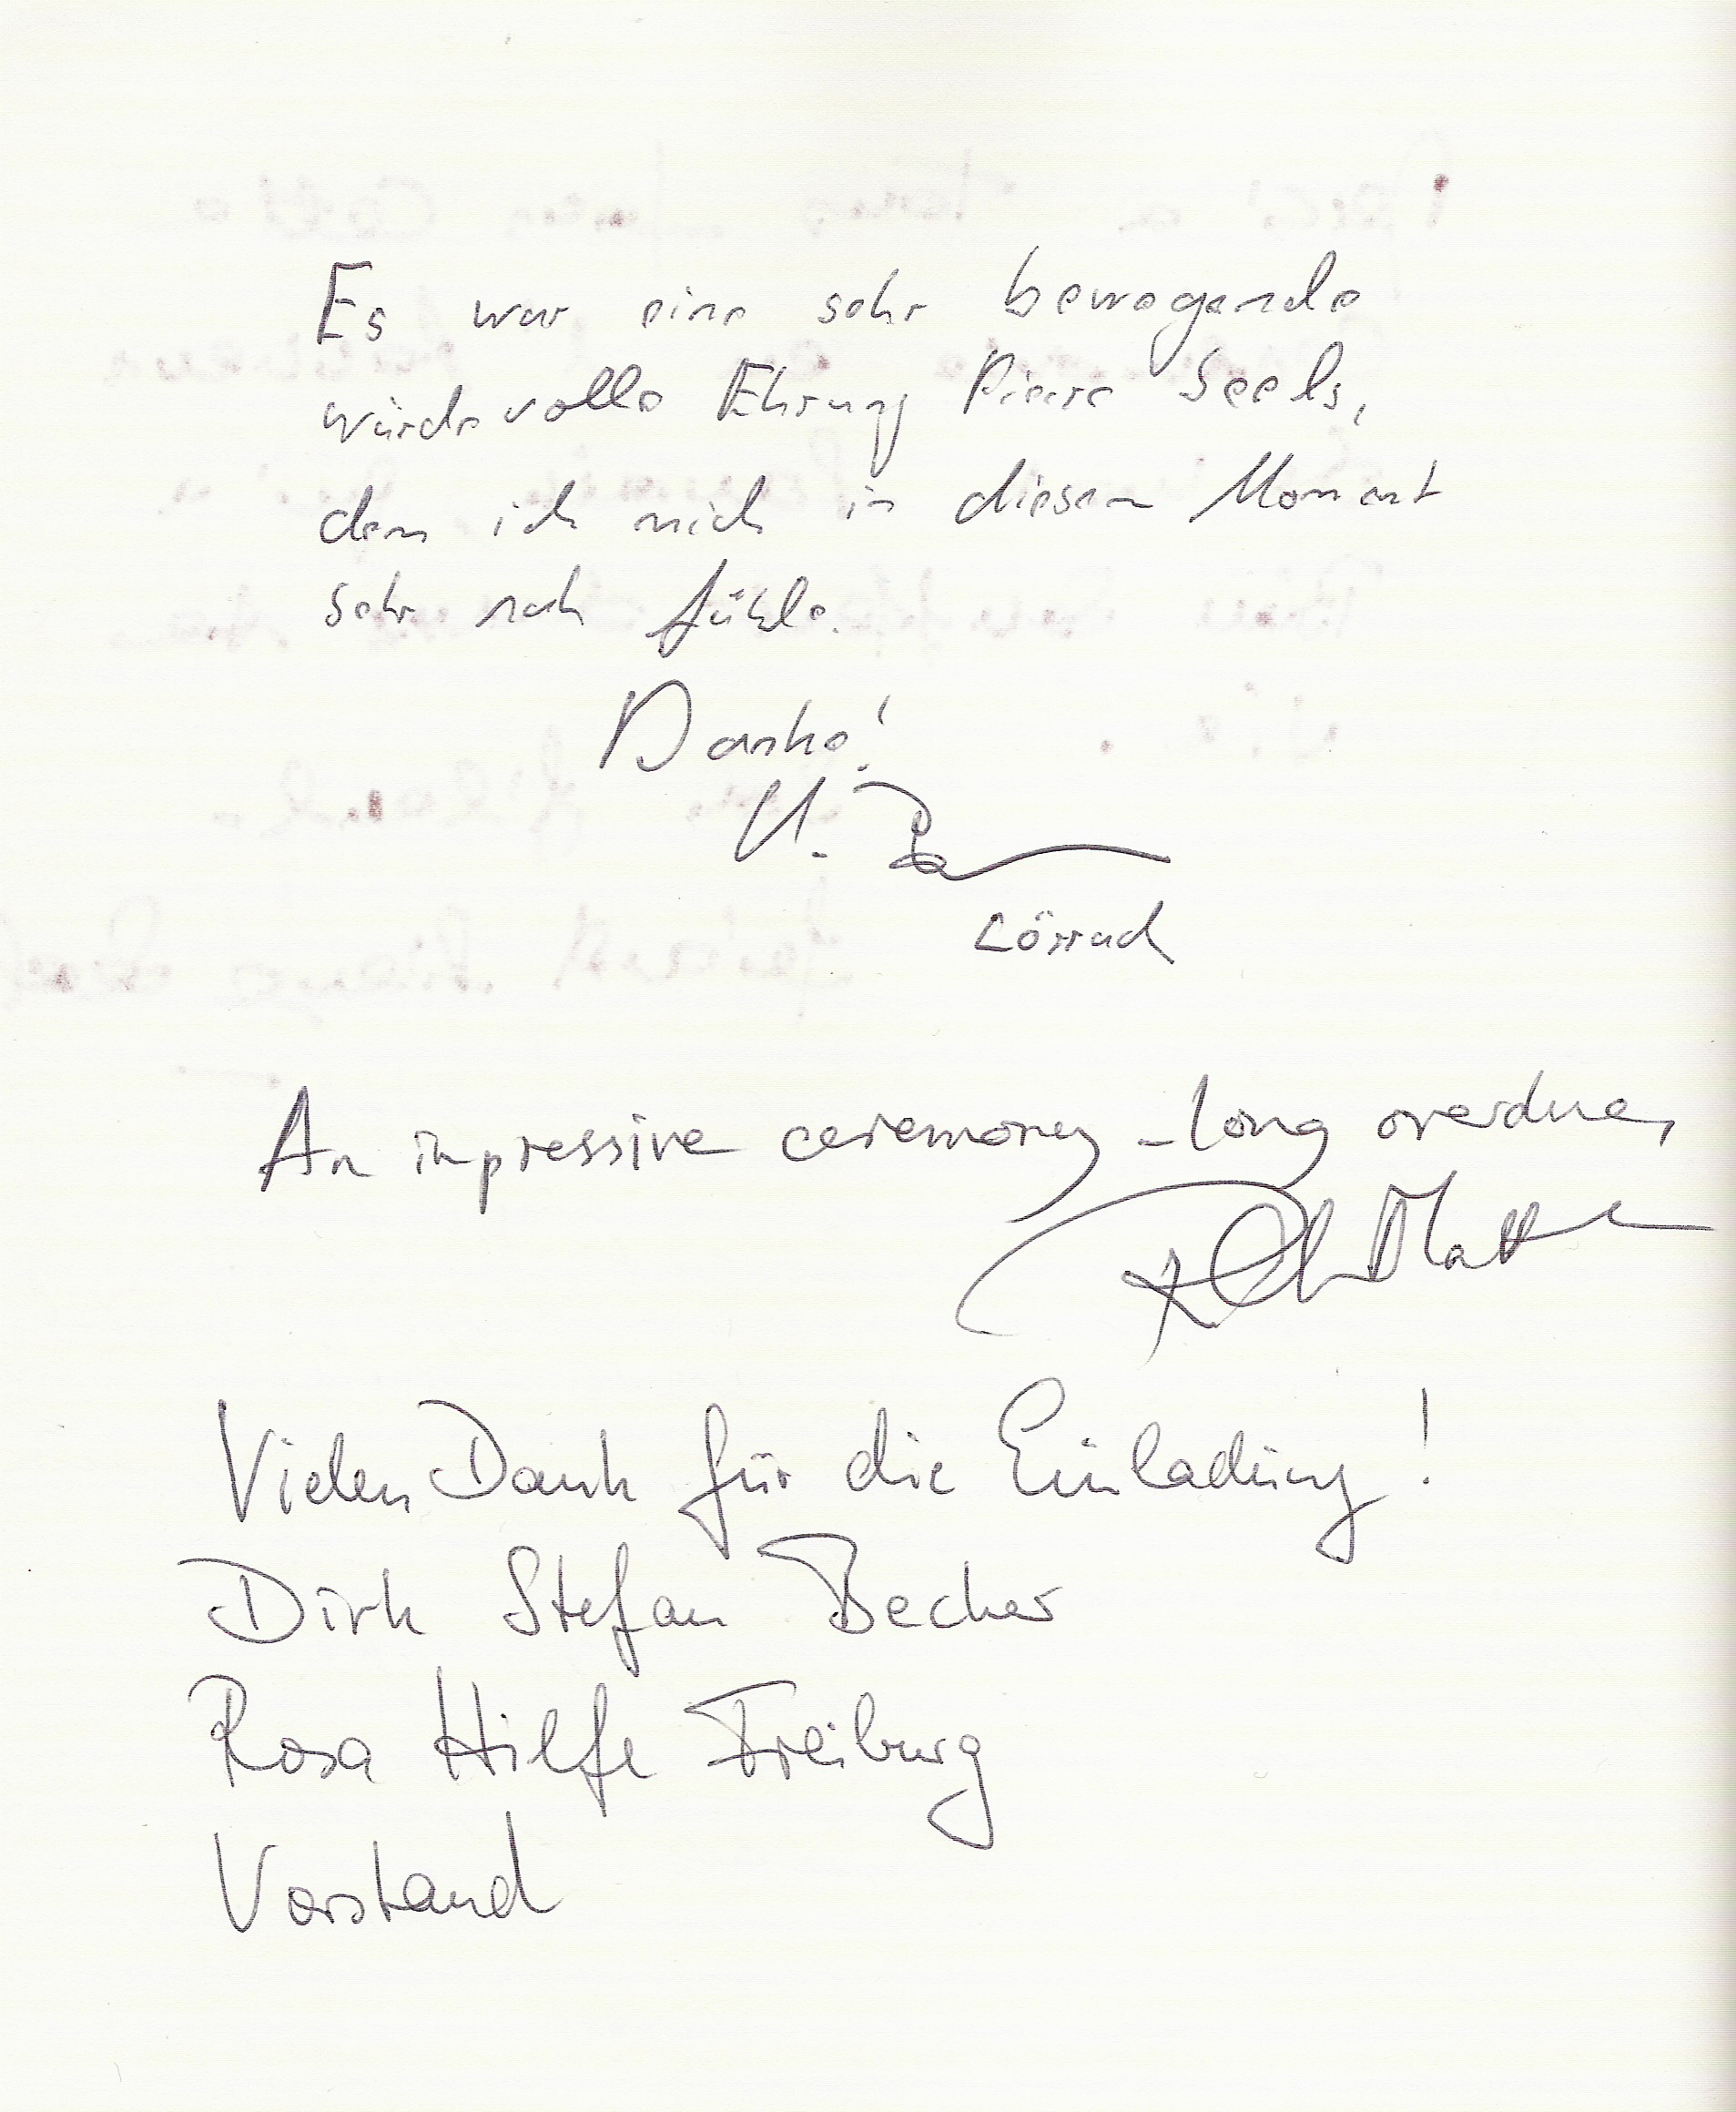 Es war eine sehr bewegende
würdevolle Ehrung Pierre Seels,
dem ich mich in diesem Moment
sehr nah fühle.
Danke!
Lörrach
An impressive ceremony – long overdue,
Vielen Dank für die Einladung!
Dirk Stefan Becker
Rosa Hilfe Freiburg
Vorstand